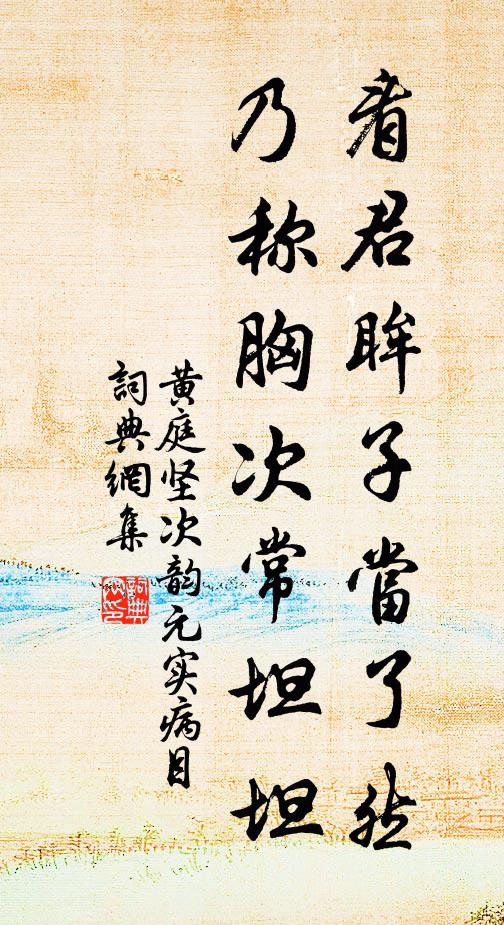 看君眸子當了然
乃称胸次常坦坦
黄庭坚次韵元实病目
詞典網集